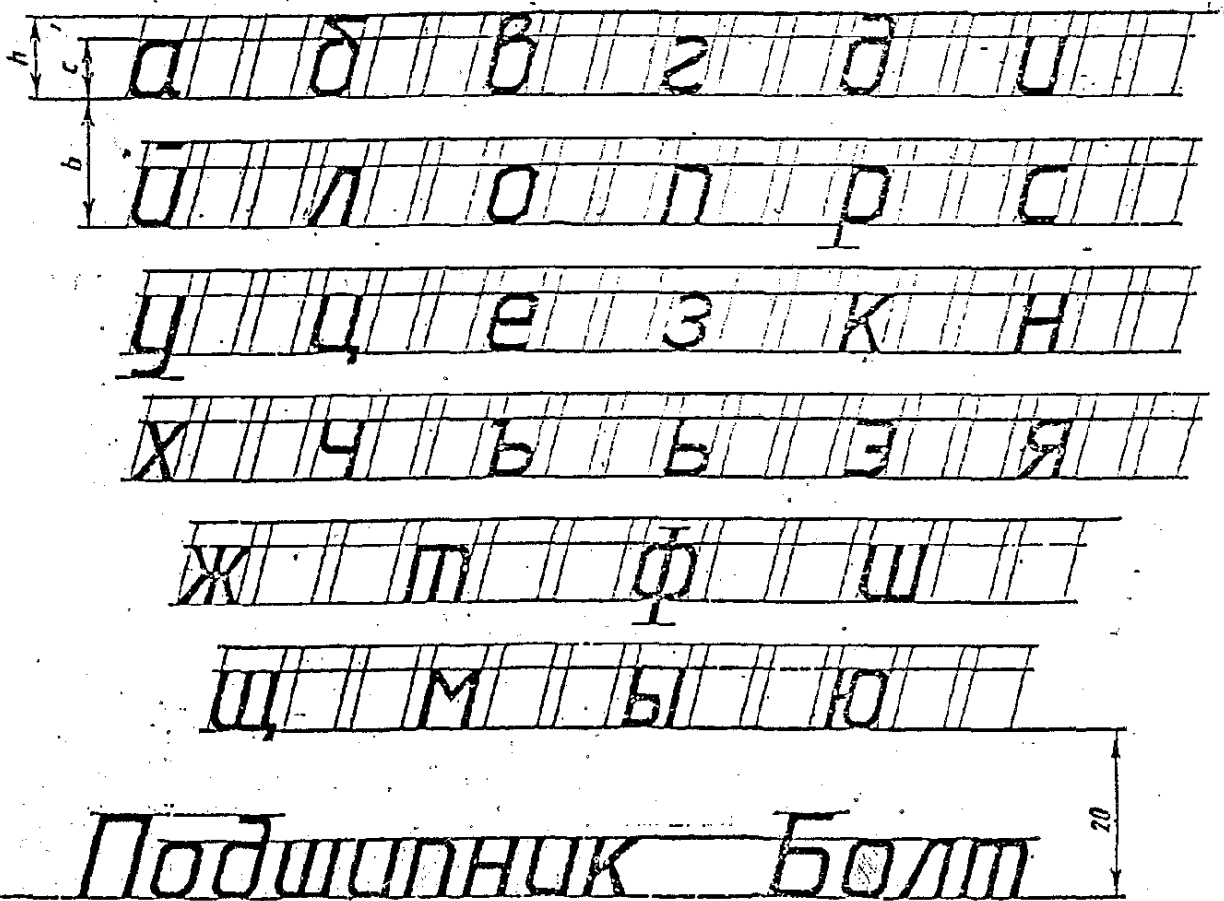 h c а б в г д и
b й л о п р с
у ц е з к н
х ч ъ ь э я
ж т ф ш
щ м ы ю
20
Подшипник Болт